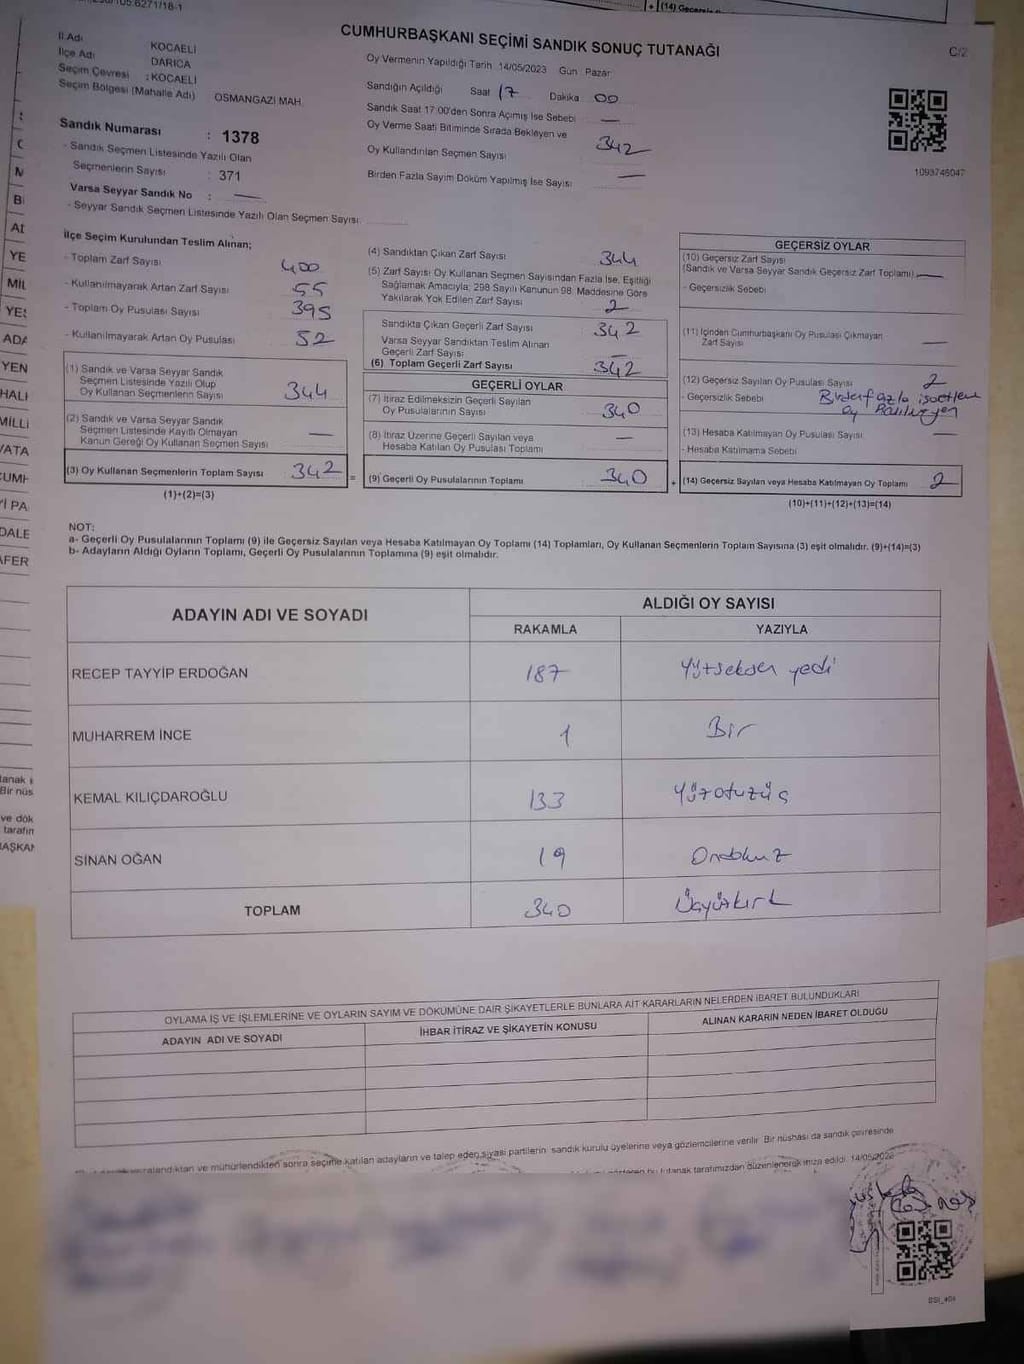 CUMHURBAŞKANI SEÇİMİ SANDIK SONUÇ TUTANAĞI
C/2
İl Adı KOCAELİ
İlçe Adı DARICA
Seçim Çevresi : KOCAELİ
Seçim Bölgesi (Mahalle Adı) OSMANGAZİ MAH.
Sandık Numarası : 1378
- Sandık Seçmen Listesinde Yazılı Olan
Seçmenlerin Sayısı : 371
Varsa Seyyar Sandık No : —
- Seyyar Sandık Seçmen Listesinde Yazılı Olan Seçmen Sayısı:
Oy Vermenin Yapıldığı Tarih 14/05/2023 Gün Pazar
Sandığın Açıldığı Saat 17 Dakika 00
Sandık Saat 17:00'den Sonra Açımış İse Sebebi —
Oy Verme Saati Bitiminde Sırada Bekleyen ve
Oy Kullandırılan Seçmen Sayısı 342
Birden Fazla Sayım Döküm Yapılmış İse Sayısı —
1093746047
İlçe Seçim Kurulundan Teslim Alınan;
- Toplam Zarf Sayısı 400
- Kullanılmayarak Artan Zarf Sayısı 55
- Toplam Oy Pusulası Sayısı 395
- Kullanılmayarak Artan Oy Pusulası 52
(1) Sandık ve Varsa Seyyar Sandık
Seçmen Listesinde Yazılı Olup
Oy Kullanan Seçmenlerin Sayısı 344
(2) Sandık ve Varsa Seyyar Sandık
Seçmen Listesinde Kayıtlı Olmayan
Kanun Gereği Oy Kullanan Seçmen Sayısı —
(3) Oy Kullanan Seçmenlerin Toplam Sayısı 342
(1)+(2)=(3)
=
(4) Sandıktan Çıkan Zarf Sayısı 344
(5) Zarf Sayısı Oy Kullanan Seçmen Sayısından Fazla İse, Eşitliği
Sağlamak Amacıyla; 298 Sayılı Kanunun 98. Maddesine Göre
Yakılarak Yok Edilen Zarf Sayısı 2
Sandıkta Çıkan Geçerli Zarf Sayısı 342
Varsa Seyyar Sandıktan Teslim Alınan
Geçerli Zarf Sayısı: —
(6) Toplam Geçerli Zarf Sayısı 342
GEÇERLİ OYLAR
(7) İtiraz Edilmeksizin Geçerli Sayılan
Oy Pusulalarının Sayısı 340
(8) İtiraz Üzerine Geçerli Sayılan veya
Hesaba Katılan Oy Pusulası Toplamı —
(9) Geçerli Oy Pusulalarının Toplamı 340
+
GEÇERSİZ OYLAR
(10) Geçersiz Zarf Sayısı
(Sandık ve Varsa Seyyar Sandık Geçersiz Zarf Toplamı) —
- Geçersizlik Sebebi
(11) İçinden Cumhurbaşkanı Oy Pusulası Çıkmayan
Zarf Sayısı —
(12) Geçersiz Sayılan Oy Pusulası Sayısı 2
- Geçersizlik Sebebi
(13) Hesaba Katılmayan Oy Pusulası Sayısı —
- Hesaba Katılmama Sebebi
(14) Geçersiz Sayılan veya Hesaba Katılmayan Oy Toplamı 2
(10)+(11)+(12)+(13)=(14)
NOT:
a- Geçerli Oy Pusulalarının Toplamı (9) ile Geçersiz Sayılan veya Hesaba Katılmayan Oy Toplamı (14) Toplamları, Oy Kullanan Seçmenlerin Toplam Sayısına (3) eşit olmalıdır. (9)+(14)=(3)
b- Adayların Aldığı Oyların Toplamı, Geçerli Oy Pusulalarının Toplamına (9) eşit olmalıdır.
ADAYIN ADI VE SOYADI ALDIĞI OY SAYISI
RAKAMLA YAZIYLA
RECEP TAYYİP ERDOĞAN 187 Yüzseksen yedi
MUHARREM İNCE 1 Bir
KEMAL KILIÇDAROĞLU 133 Yüzotuzüç
SİNAN OĞAN 19 Ondokuz
TOPLAM 340 Üçyüzkırk
OYLAMA İŞ VE İŞLEMLERİNE VE OYLARIN SAYIM VE DÖKÜMÜNE DAİR ŞİKAYETLERLE BUNLARA AİT KARARLARIN NELERDEN İBARET BULUNDUKLARI
ADAYIN ADI VE SOYADI İHBAR İTİRAZ VE ŞİKAYETİN KONUSU ALINAN KARARIN NEDEN İBARET OLDUĞU
ve mühürlendikten sonra seçime katılan adayların ve talep eden siyasi partilerin sandık kurulu üyelerine veya gözlemcilerine verilir. Bir nüshası da sandık çevresinde
bu tutanak tarafımızdan düzenlenerek imza edildi. 14/05/2023